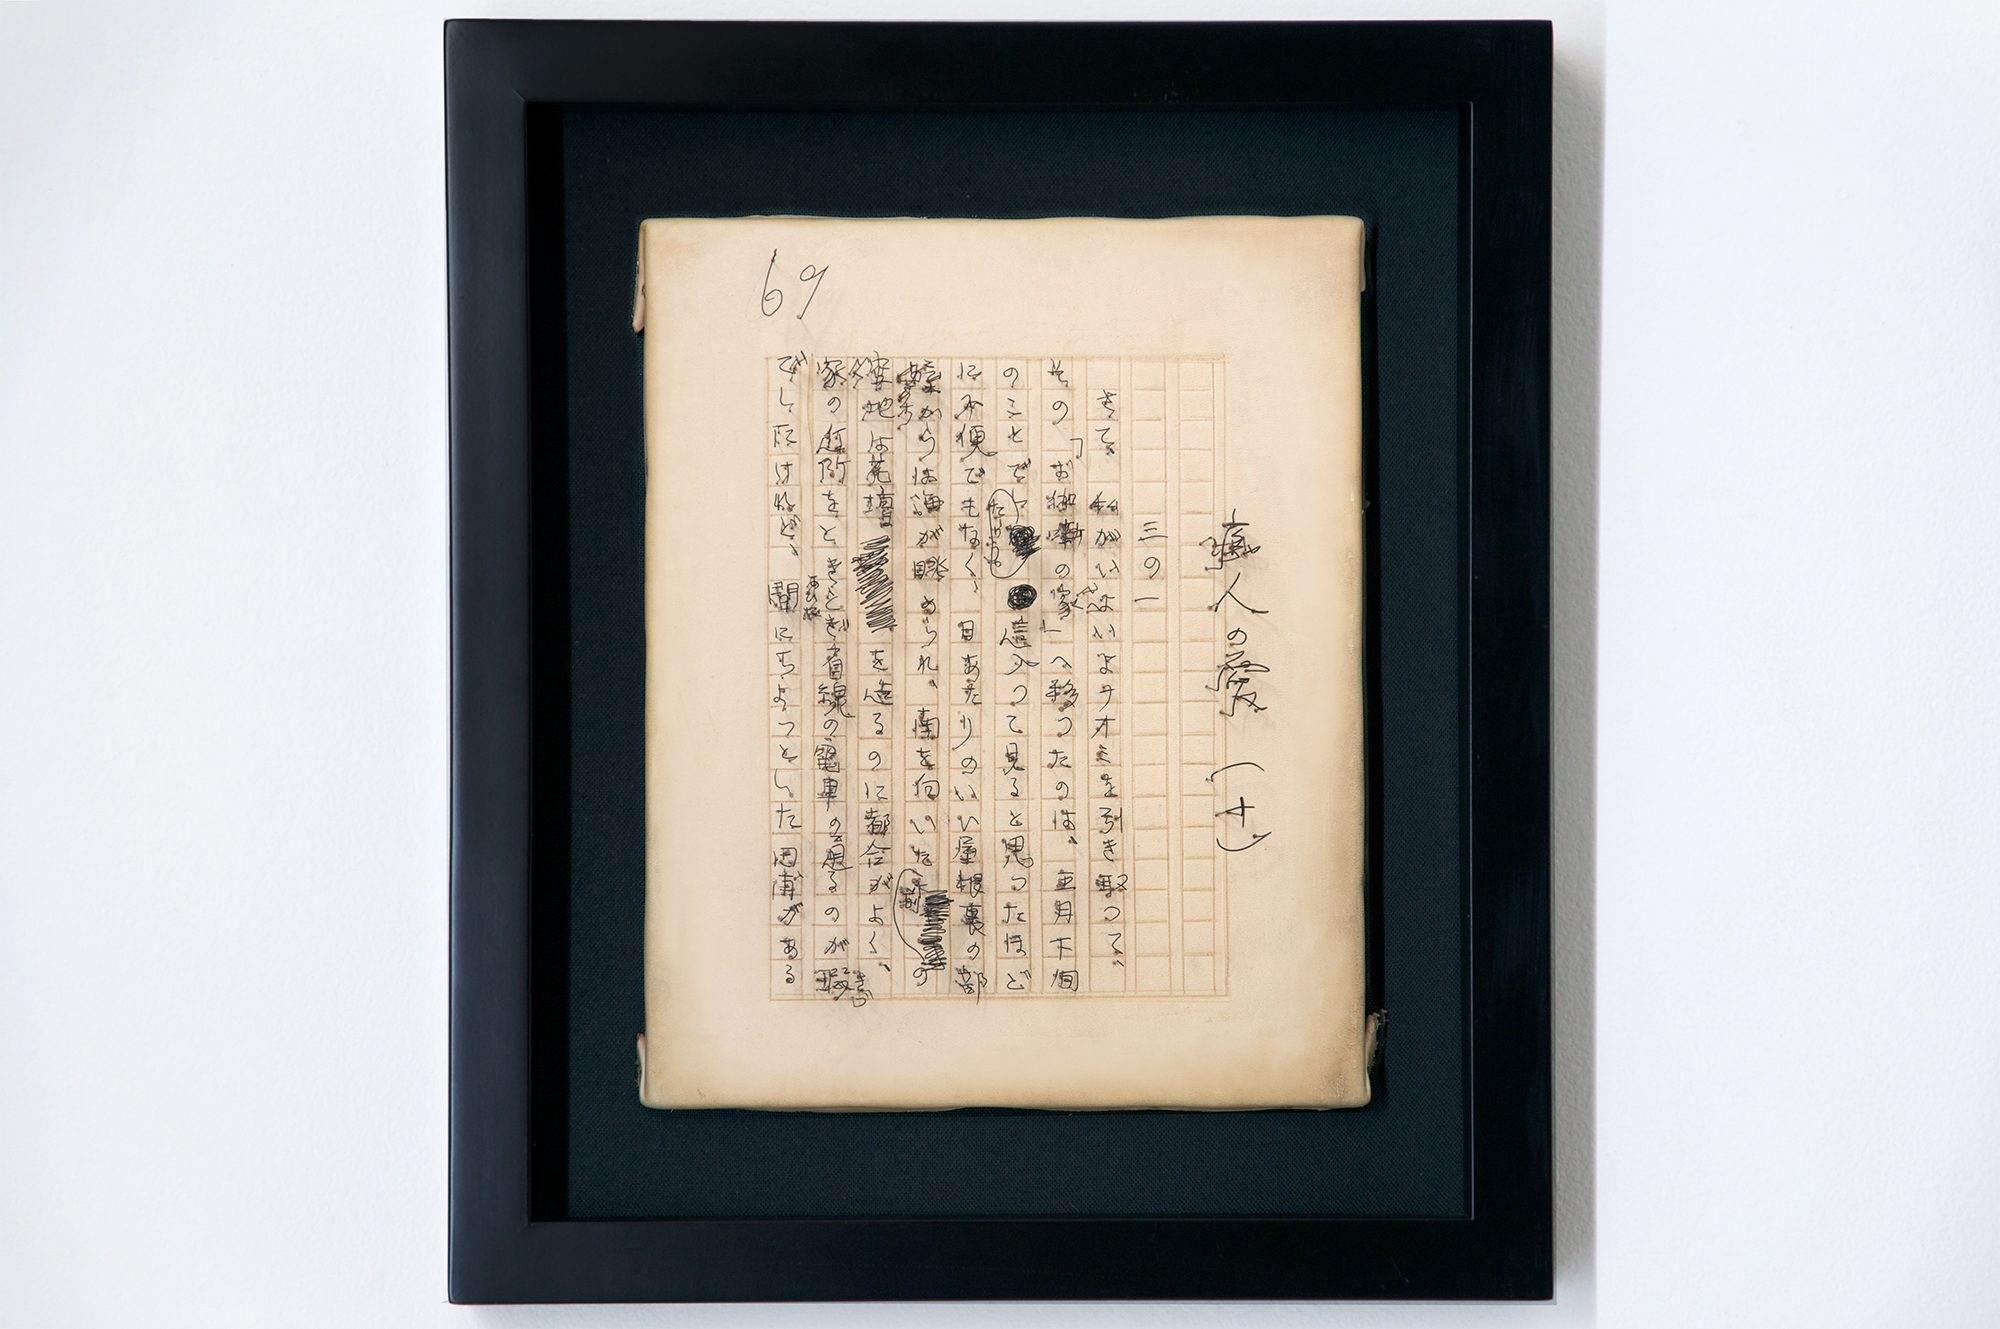 69
痴人の愛
三の一
さて、私がいよいよナオミを引き取つて、
その「お伽噺の家」へ移つたのは、五月下旬
のことでしたらう。這入つて見ると思つたほど
に不便でもなく、日あたりのいい屋根裏の部
屋からは海が眺められ、南を向いた前の
空地は花壇を造るのに都合がよく、
家の近所をときどき省線の電車の通るのが瑕
でしたけれど、間にちよつとした田圃がある